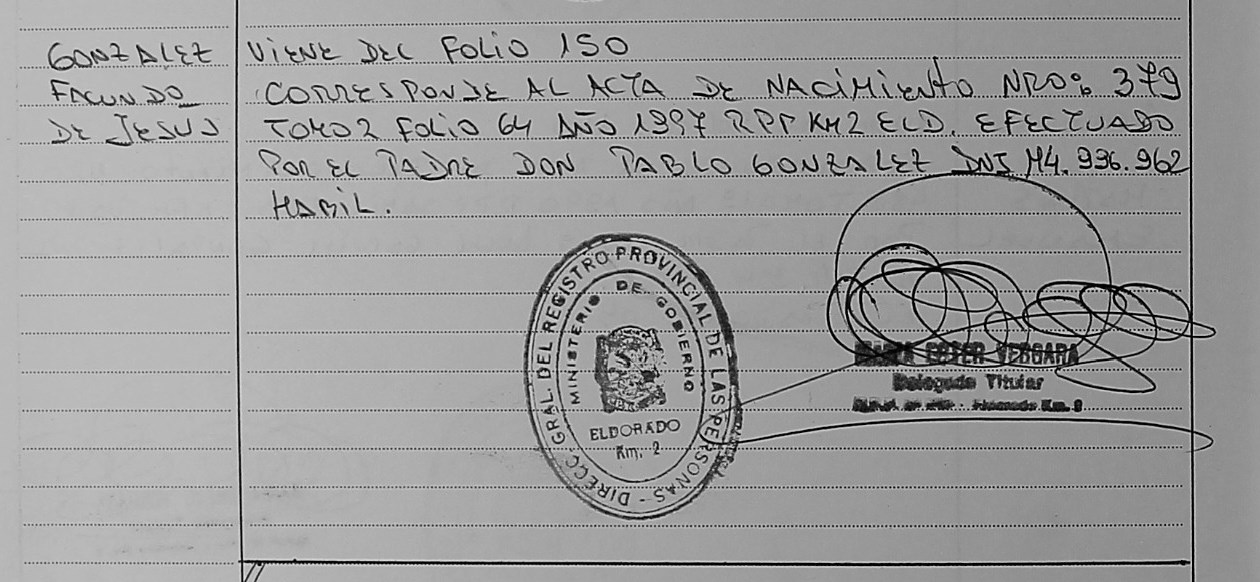 GONZALEZ
FACUNDO
DE JESUS
VIENE DEL FOLIO 150
CORRESPONDE AL ACTA DE NACIMIENTO NRO: 379
TOMO 2 FOLIO 64 AÑO 1997 RPP KM2 ELD. EFECTUADO
POR EL PADRE DON PABLO GONZALEZ DNI M4.936.962
HABIL.
DIRECC. GRAL. DEL REGISTRO PROVINCIAL DE LAS PERSONAS -
MINISTERIO DE GOBIERNO
ELDORADO
Km. 2
ESTER VERGARA
Delegada Titular